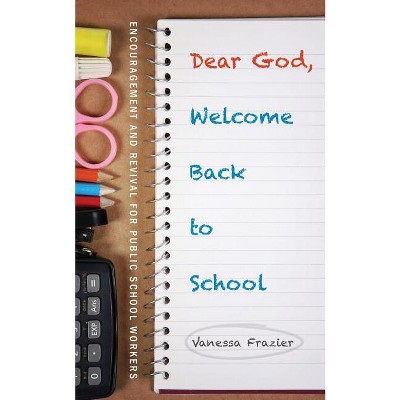 Dear God,
Welcome
Back
to
School
Vanessa Frazier
ENCOURAGEMENT AND REVIVAL FOR PUBLIC SCHOOL WORKERS
=
Ans
EXP
•
0